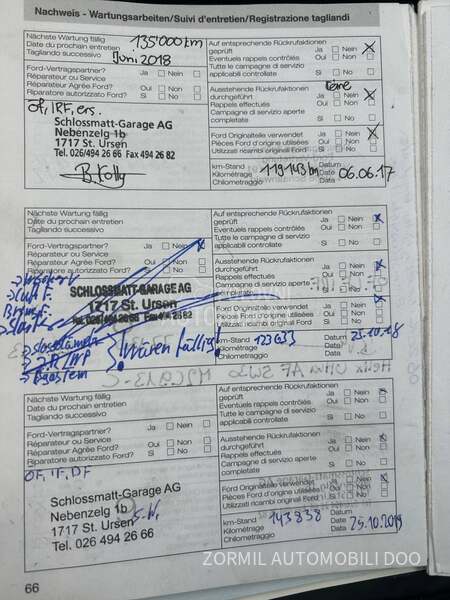 Nachweis - Wartungsarbeiten/Suivi d'entretien/Registrazione tagliandi
Nächste Wartung fällig 135'000 km
Date du prochain entretien
Tagliando successivo Juni 2018
Ford-Vertragspartner? Ja Nein
Réparateur ou Service
Réparateur Agrée Ford? Oui Non
Riparatore autorizzato Ford? Si No
Öf, IRF, ers.
Schlossmatt-Garage AG
Nebenzelg 1b
1717 St. Ursen
Tel. 026/494 26 66 Fax 494 26 82
Auf entsprechende Rückrufaktionen
geprüft Ja Nein
Eventuels rappels contrôlés Oui Non
Tutte le campagne di servizio
applicabili controllate Si No
Ausstehende Rückrufaktionen
durchgeführt Ja Nein
Rappels effectués Oui Non
Campagne di servizio aperte
completate Si No
Ford Originalteile verwendet Ja Nein
Pièces Ford d'origine utilisées Oui Non
Utilizzati ricambi originali Ford Si No
km-Stand Datum
Kilométrage 119'143 km Date 06.06.17
Chilometraggio Data
Nächste Wartung fällig
Date du prochain entretien
Tagliando successivo
Ford-Vertragspartner? Ja Nein
Réparateur ou Service
Réparateur Agrée Ford? Oui Non
Riparatore autorizzato Ford? Si No
SCHLOSSMATT-GARAGE AG
1717 St. Ursen
Tel. 026/494 26 66 Fax 494 26 82
! wären fällig!
Auf entsprechende Rückrufaktionen
geprüft Ja Nein
Eventuels rappels contrôlés Oui Non
Tutte le campagne di servizio
applicabili controllate Si No
Ausstehende Rückrufaktionen
durchgeführt Ja Nein
Rappels effectués Oui Non
Campagne di servizio aperte
completate Si No
Ford Originalteile verwendet Ja Nein
Pièces Ford d'origine utilisées Oui Non
Utilizzati ricambi originali Ford Si No
km-Stand Datum
Kilométrage Date 23.10.18
Chilometraggio Data
Nächste Wartung fällig
Date du prochain entretien
Tagliando successivo
Ford-Vertragspartner? Ja Nein
Réparateur ou Service
Réparateur Agrée Ford? Oui Non
Riparatore autorizzato Ford? Si No
ÖF, IF, DF
Schlossmatt-Garage AG
Nebenzelg 1b
1717 St. Ursen
Tel. 026 494 26 66
Auf entsprechende Rückrufaktionen
geprüft Ja Nein
Eventuels rappels contrôlés Oui Non
Tutte le campagne di servizio
applicabili controllate Si No
Ausstehende Rückrufaktionen
durchgeführt Ja Nein
Rappels effectués Oui Non
Campagne di servizio aperte
completate Si No
Ford Originalteile verwendet Ja Nein
Pièces Ford d'origine utilisées Oui Non
Utilizzati ricambi originali Ford Si No
km-Stand Datum
Kilométrage 143'838 Date 25.10.2019
Chilometraggio Data
66
ZORMIL AUTOMOBILI DOO